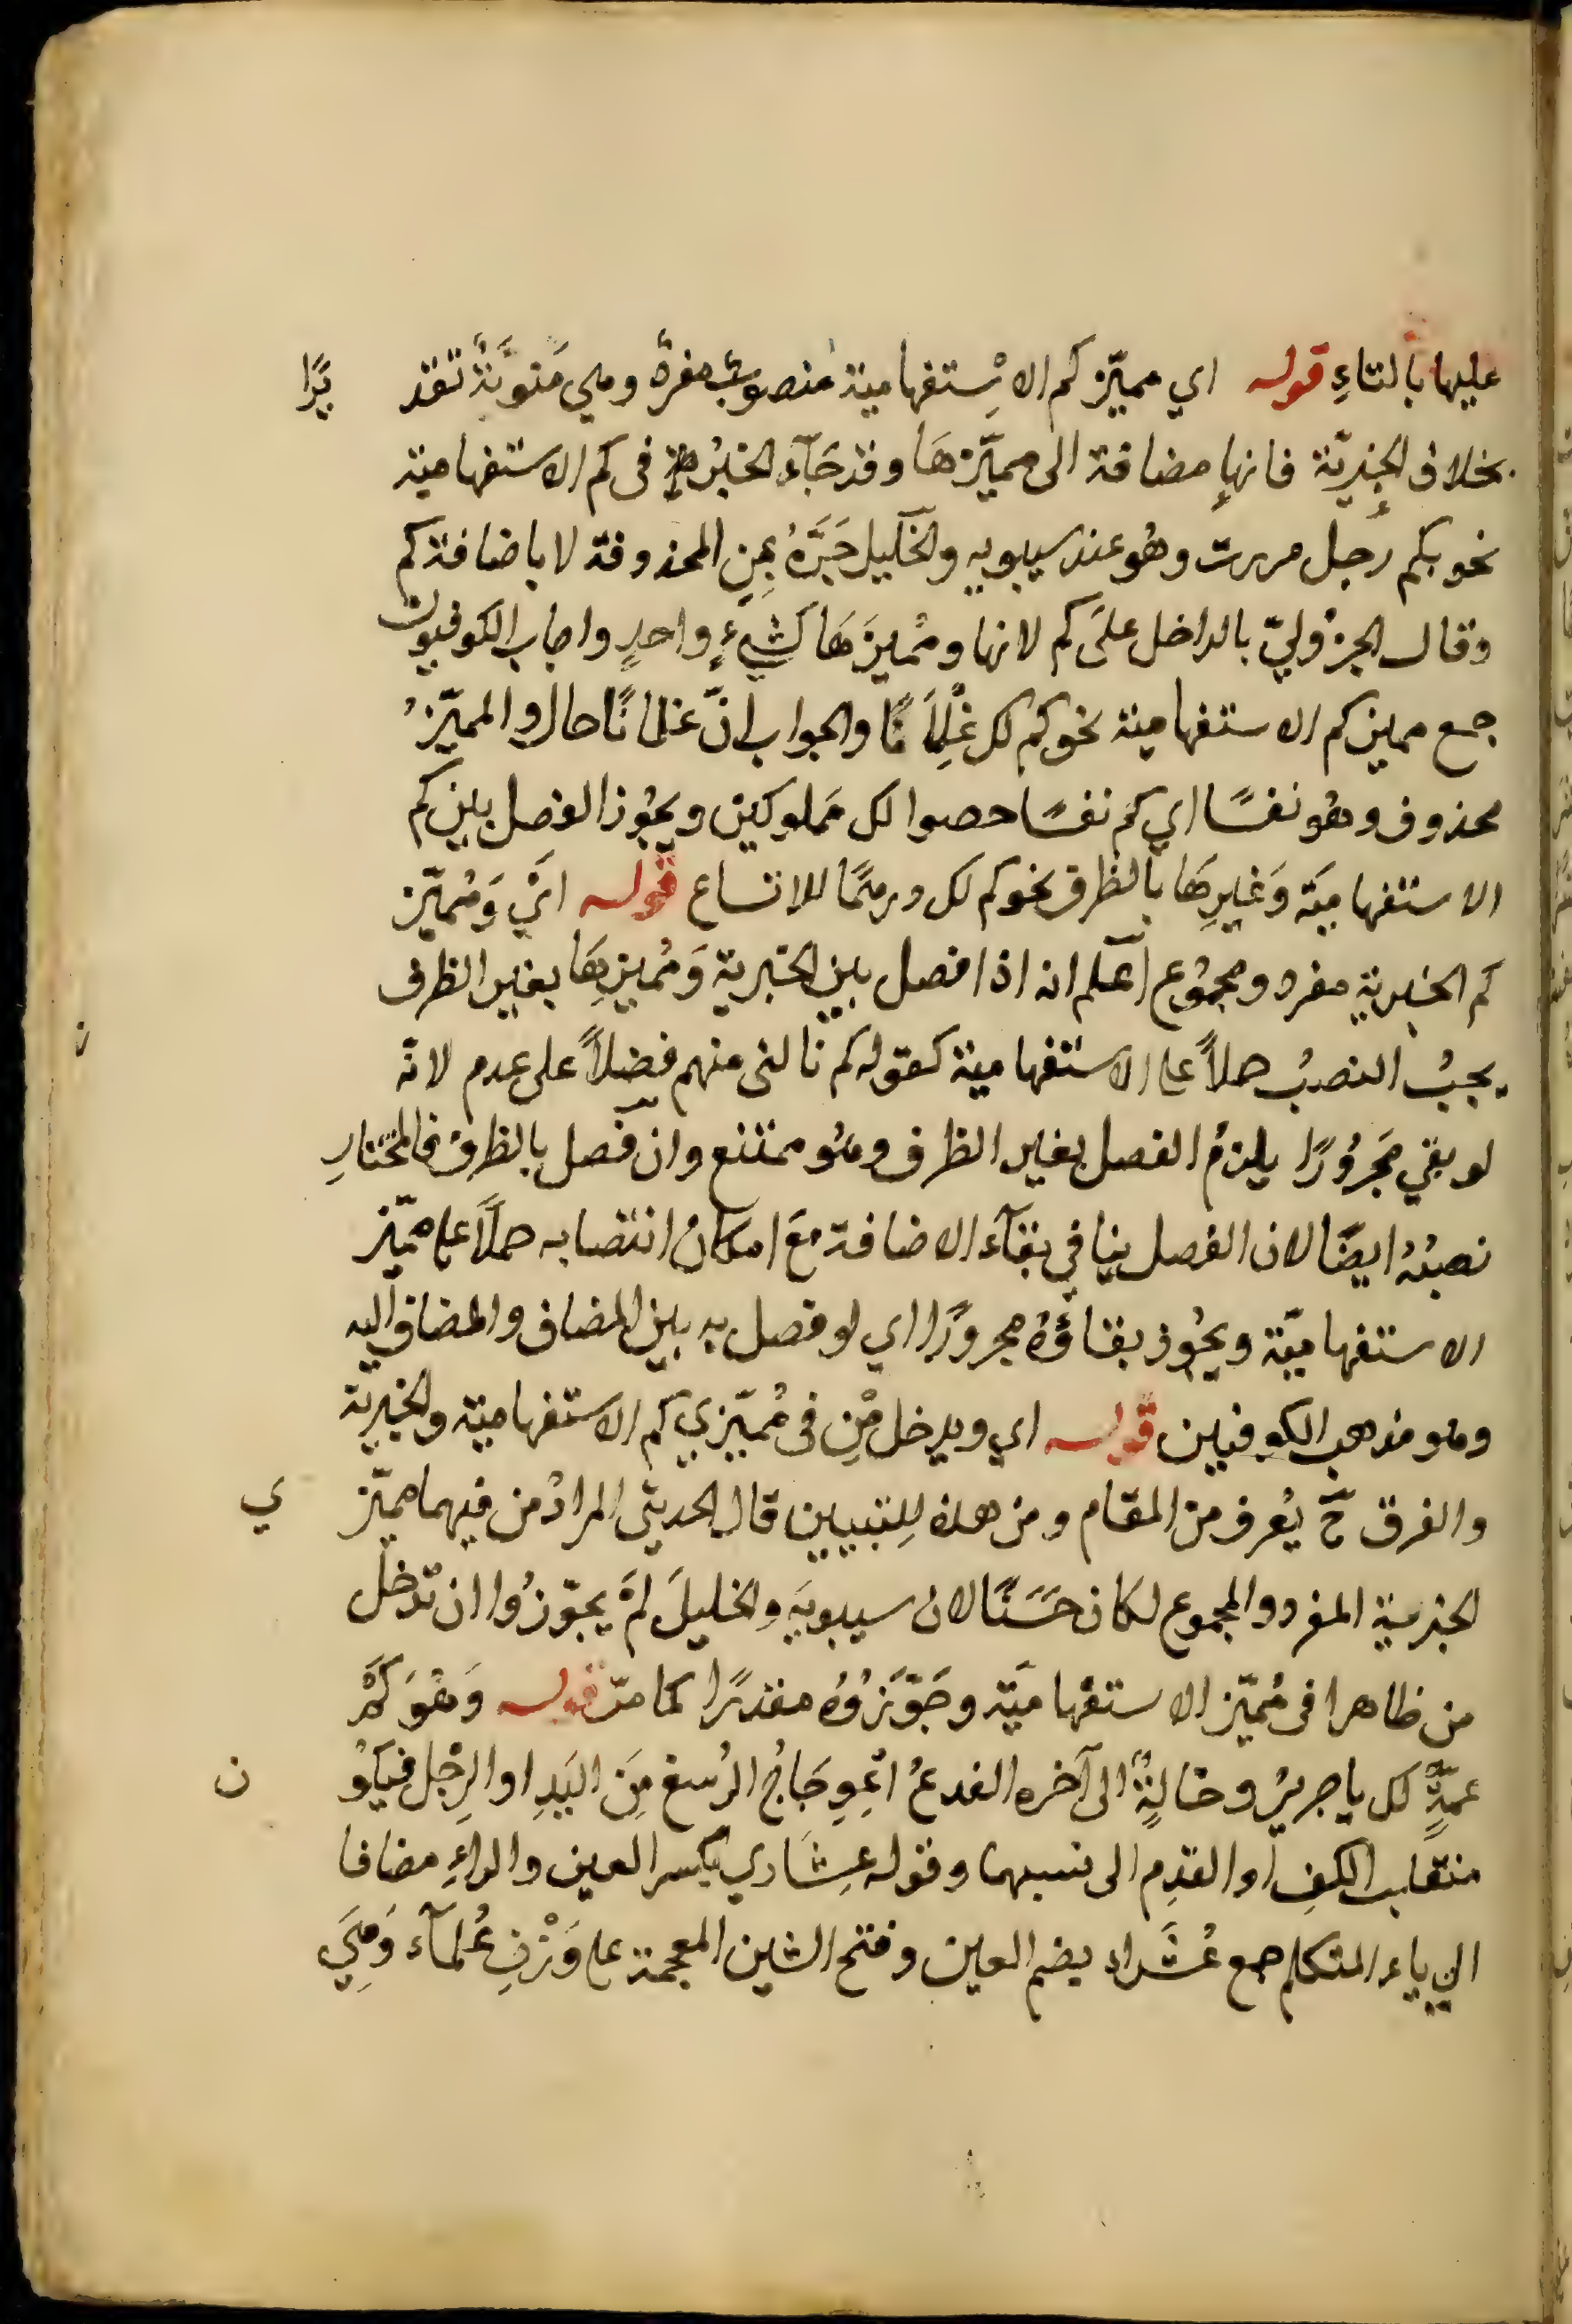 عليها بالتاءِ قوله اي مميّز كم الاِسْتفهامية منصوبٌ مفردٌ وهي مَنوَّنةٌ تَقد يرًا
بخلاف الخبريّة فانها مضافة الى مميَّزهَا وقد جَآء الخبر في كم الاستفهامية
نحو بكم رُجل مررت وهُو عند سيبويه والخليل جَرَّهُ بِمِن المحذوفة لا باضافة كم
وقال الجزُوليّ بالداخل علَى كم لانها ومُميزَهَا كَشيءٍ واحدٍ واجاب الكوفيون
جمع مميز كم الاستفهامية نحو كم لك غِلْمَانًا والجواب انّ غلمانًا حال والمميّزُ
محذوف وهُو نفسًا اي كم نفسًا حصوا لك مَملوكين ويجُوز الفصل بين كم
الاستفهاميَّة وَغيرِهَا بالظرف نحو كم لك درهمًا للاتساع قوله ايْ وَمُميّز
كم الخبرية مفرد ومجمُوع اعلم انه اذا فصل بين الخبرية وَمُميزهَا بغير الظرف
يجبُ النصبُ حملاً على الاستفهامية كقوله كم نالنى منهم فضلاً على عدم لانّه
لو بقي مَجرُورًا يلزمُ الفصل بغير الظرف وهُو ممتنع وان فَصل بالظرفِ فالمختارِ
نصبُهُ ايضًا لان الفصل ينافي بقآء الاضافة مَع امكان انتصابه حملاً على مميّز
الاستفهاميّة ويجُوز بقاؤُهُ مجرورًا اي لو فصل به بين المضاف والمضاف اليه
وهو مذهب الكوفيين قوله اي ويدخل مْنِ في مُميّزي كم الاستفهامية والخبريّة
والفرق حّ يُعرف من المقام ومن هذه لِلتبيين قال الحديثي المرادُ من فيهما مميّز ي
الخبرية المفرد والمجموع لكان حَسَنًا لان سيبويَه والخليلَ لمَ يجوّزُوا ان تدخل
من ظاهرا في مُميّز الاستفهاميَّة وجَوَّزَوُه مقدرًا كما مرّ قوله وَهُوَ كَمْ
عمةٍ لك يا جريرُ وخالةٍ الى آخره الفدعُ اعْوِجَاجُ الرُسغ مِنَ اليَدِ او الرِّجل فيكوُ ن
منقلب الكفِ او القدِم الى نسيهما وقوله عِشَاري بكسر العين والراءِ مضافا
الى ياءِ المتكلم جمع عُشَراء بضم العين وفتح الشين المعجمة على وَزْنِ عُلمآء وَهيَ